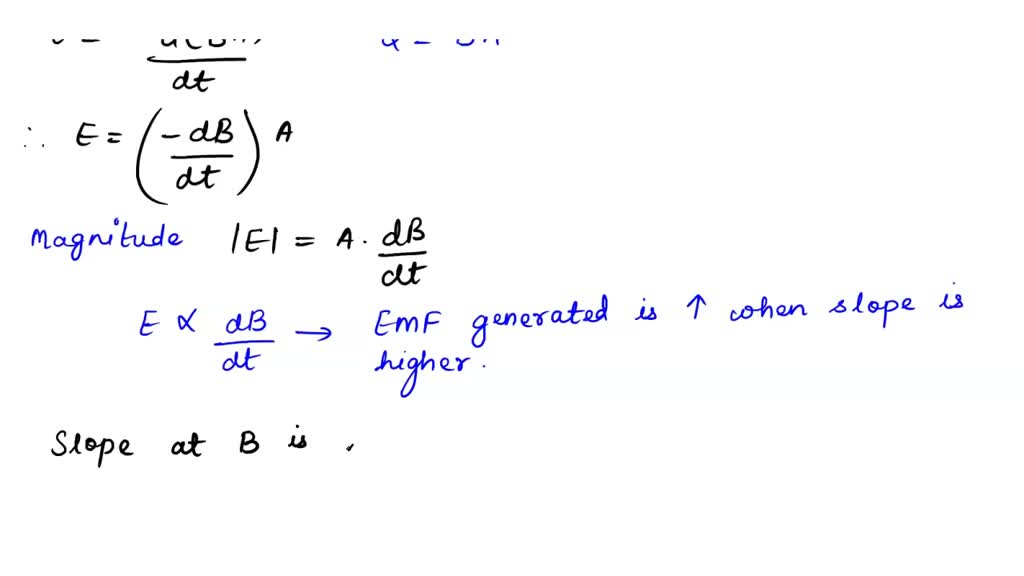 dt
∴ E = (-dB/dt) A
Magnitude |E| = A · dB/dt
E ∝ dB/dt → EMF generated is ↑ when slope is
higher.
Slope at B is